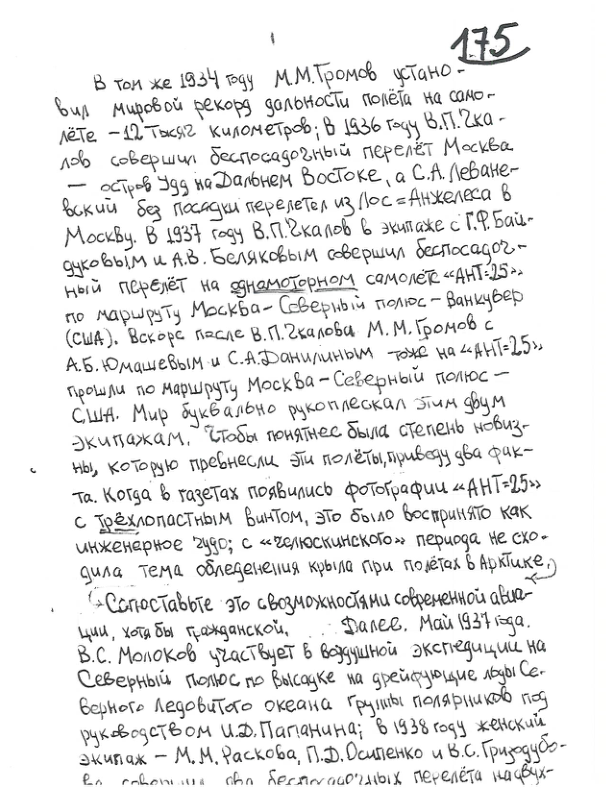 175
В том же 1934 году М.М.Громов устано-
вил мировой рекорд дальности полёта на само-
лёте – 12 тысяч километров; в 1936 году В.П.Чка-
лов совершил беспосадочный перелёт Москва
– остров Удд на Дальнем Востоке, а С.А.Леване-
вский без посадки перелетел из Лос=Анжелеса в
Москву. В 1937 году В.П.Чкалов в экипаже с Г.Ф.Бай-
дуковым и А.В.Беляковым совершил беспосадоч-
ный перелёт на одномоторном самолёте «АНТ=25»
по маршруту Москва – Северный полюс – Ванкувер
(США). Вскоре после В.П.Чкалова М.М.Громов с
А.Б.Юмашевым и С.А.Данилиным тоже на «АНТ=25»
прошли по маршруту Москва – Северный полюс –
США. Мир буквально рукоплескал этим двум
экипажам. Чтобы понятнее была степень новиз-
ны, которую превнесли эти полёты, приведу два фак-
та. Когда в газетах появились фотографии «АНТ=25»
с трёхлопастным винтом, это было воспринято как
инженерное чудо; с «челюскинского» периода не схо-
дила тема обледенения крыла при полётах в Арктике.
Сопоставьте это с возможностями современной авиа-
ции, хотя бы гражданской. Далее. Май 1937 года.
В.С. Молоков участвует в воздушной экспедиции на
Северный полюс по высадке на дрейфующие льды Се-
верного Ледовитого океана группы полярников под
руководством И.Д.Папанина; в 1938 году женский
экипаж – М.М.Раскова, П.Д.Осипенко и В.С.Гризодубо-
ва совершил два беспосадочных перелёта на двух-